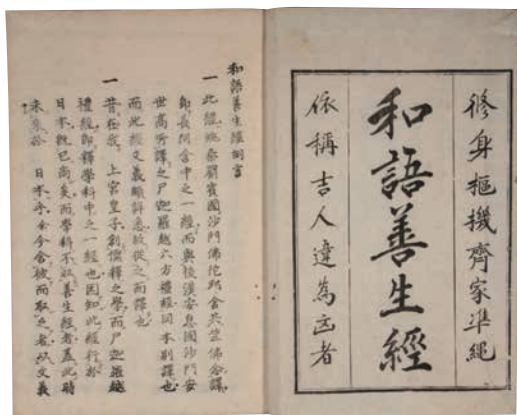 修身樞機齊家準繩
和語善生經
依稱吉人違為凶者
和語善生經例言
一此經姚秦罽賓國沙門佛陀耶舍共竺佛念譯
即長阿含中之一經而與後漢安息國沙門安
世高所譯之尸迦羅越六方禮經同本別譯也
而此經文義頗詳悉故從之而譯也
一昔在我 上宮皇子創儒釋之學而尸迦羅越
禮經即釋學科中之一經也因知此經行於
日本既已尚矣而學科不取善生經者蓋此時
未來於 日本乎今舍彼而取之者以文義